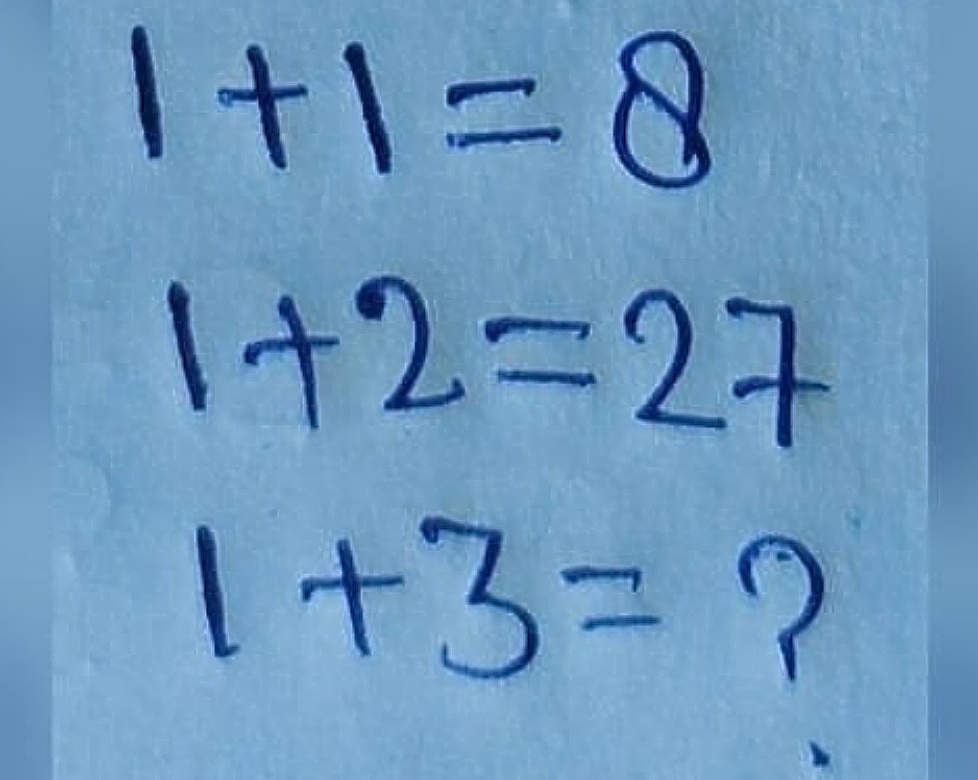 1+1=8
1+2=27
1+3=?